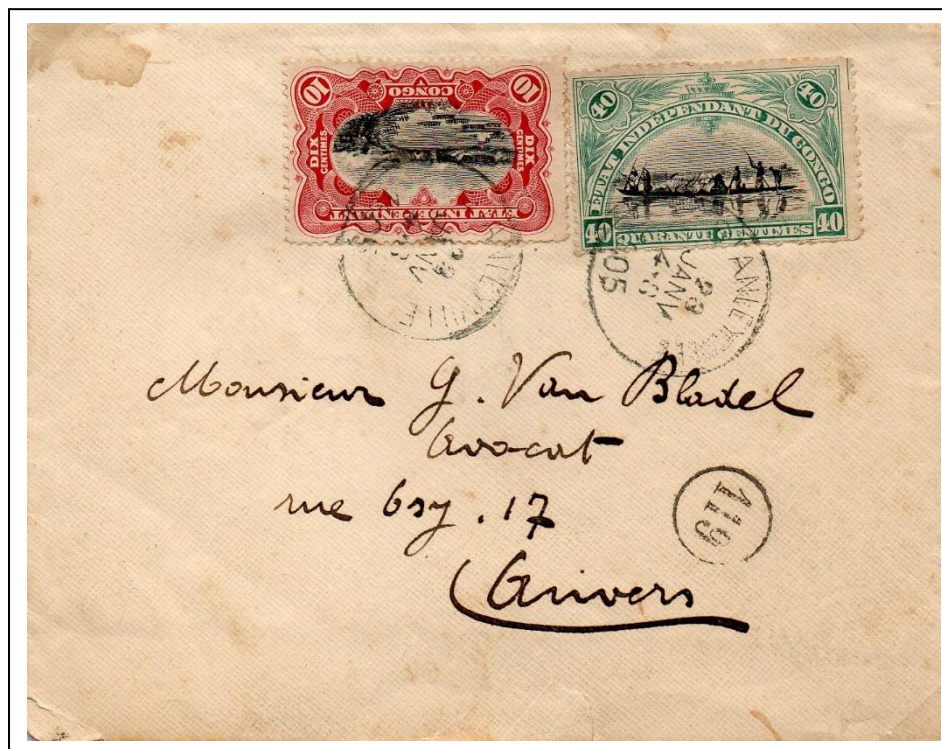 10 CONGO 10
DIX CENTIMES DIX CENTIMES
ETAT INDEPENDANT
40 40
ETAT INDEPENDANT DU CONGO
40 QUARANTE CENTIMES 40
28
JANV
05
Monsieur G. Van Bladel
Avocat
rue 17
Anvers
119